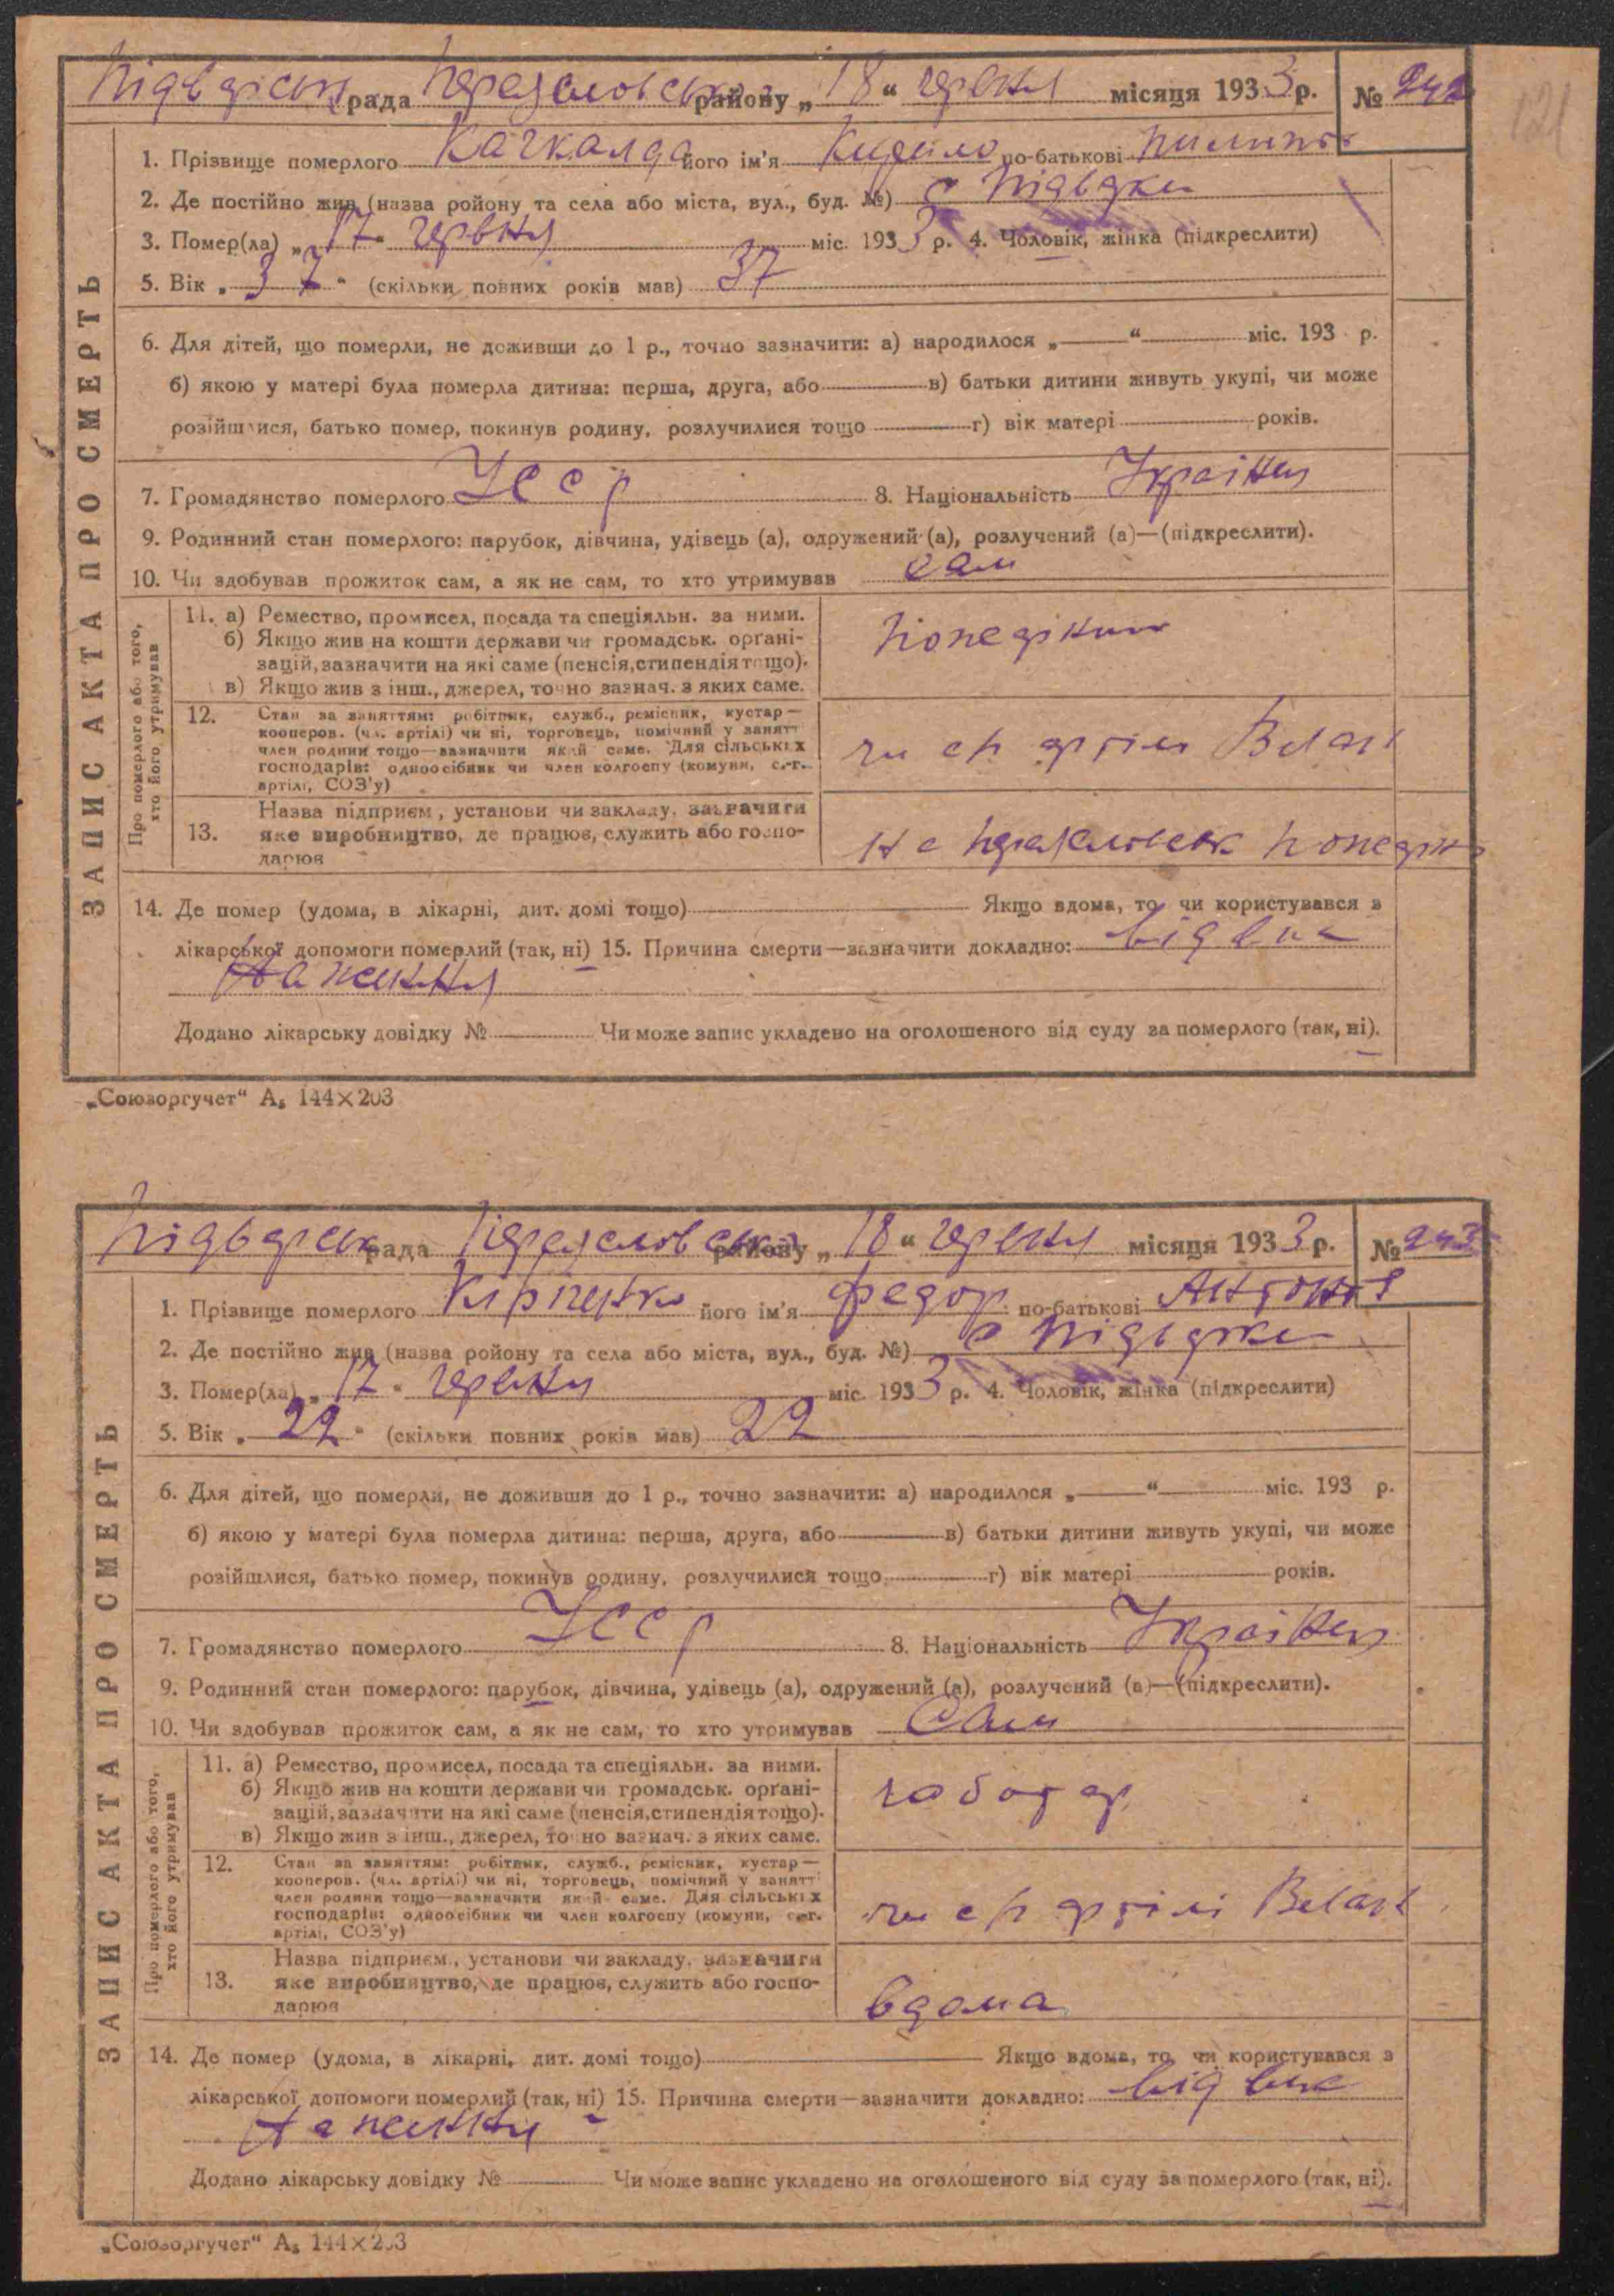 рада району „ 18 “ червня місяця 1933 р. № 242
121
ЗАПИС АКТА ПРО СМЕРТЬ
1. Прізвище померлого Качкалда його ім'я Кирило по-батькові
2. Де постійно жив (назва ройону та села або міста, вул., буд. №) с
3. Помер(ла) „ 17 “ червня міс. 1933 р. 4. Чоловік, жінка (підкреслити)
5. Вік „ 37 “ (скільки повних років мав) 37
6. Для дітей, що померли, не доживши до 1 р., точно зазначити: а) народилося „ “ міс. 193 р.
б) якою у матері була померла дитина: перша, друга, або в) батьки дитини живуть укупі, чи може
розійшлися, батько помер, покинув родину, розлучилися тощо г) вік матері років.
7. Громадянство померлого УССР 8. Національність
9. Родинний стан померлого: парубок, дівчина, удівець (а), одружений (а), розлучений (а)—(підкреслити).
10. Чи здобував прожиток сам, а як не сам, то хто утримував сам
Про померлого або того,
хто його утримував
11. а) Ремество, промисел, посада та спеціяльн. за ними.
б) Якщо жив на кошти держави чи громадськ. орґані-
зацій, зазначити на які саме (пенсія, стипендія тощо).
в) Якщо жив з інш., джерел, точно зазнач. з яких саме.
12. Стан за заняттям: робітник, служб., ремісник, кустар—
кооперов. (чл. артілі) чи ні, торговець, помічний у занятт
член родини тощо—зазначити який саме. Для сільських
господарів: одноосібник чи член колгоспу (комуни, с.-г.
артілі, СОЗ'у)
артіли
13. Назва підприєм., установи чи закладу, зазначити
яке виробництво, де працює, служить або госпо-
дарює
14. Де помер (удома, в лікарні, дит. домі тощо) Якщо вдома, то чи користувався з
лікарської допомоги померлий (так, ні) 15. Причина смерти—зазначити докладно: від висна
ження
Додано лікарську довідку № Чи може запис укладено на оголошеного від суду за померлого (так, ні).
„Союзоргучет“ А₅ 144×203
рада району „ 18 “ червня місяця 1933 р. № 243
ЗАПИС АКТА ПРО СМЕРТЬ
1. Прізвище померлого його ім'я Федор по-батькові Антонов
2. Де постійно жив (назва ройону та села або міста, вул., буд. №) с
3. Помер(ла) „ 17 “ червня міс. 1933 р. 4. Чоловік, жінка (підкреслити)
5. Вік „ 22 “ (скільки повних років мав) 22
6. Для дітей, що померли, не доживши до 1 р., точно зазначити: а) народилося „ “ міс. 193 р.
б) якою у матері була померла дитина: перша, друга, або в) батьки дитини живуть укупі, чи може
розійшлися, батько помер, покинув родину, розлучилися тощо г) вік матері років.
7. Громадянство померлого УССР 8. Національність
9. Родинний стан померлого: парубок, дівчина, удівець (а), одружений (а), розлучений (а)—(підкреслити).
10. Чи здобував прожиток сам, а як не сам, то хто утримував Сам
Про померлого або того,
хто його утримував
11. а) Ремество, промисел, посада та спеціяльн. за ними.
б) Якщо жив на кошти держави чи громадськ. орґані-
зацій, зазначити на які саме (пенсія, стипендія тощо).
в) Якщо жив з інш., джерел, точно зазнач. з яких саме.
чоботар
12. Стан за заняттям: робітник, служб., ремісник, кустар—
кооперов. (чл. артілі) чи ні, торговець, помічний у занятт
член родини тощо—зазначити який саме. Для сільських
господарів: одноосібник чи член колгоспу (комуни, с.-г.
артілі, СОЗ'у)
артілі
13. Назва підприєм., установи чи закладу, зазначити
яке виробництво, де працює, служить або госпо-
дарює
вдома
14. Де помер (удома, в лікарні, дит. домі тощо) Якщо вдома, то чи користувався з
лікарської допомоги померлий (так, ні) 15. Причина смерти—зазначити докладно: від висна
ження
Додано лікарську довідку № Чи може запис укладено на оголошеного від суду за померлого (так, ні).
„Союзоргучет“ А₅ 144×203